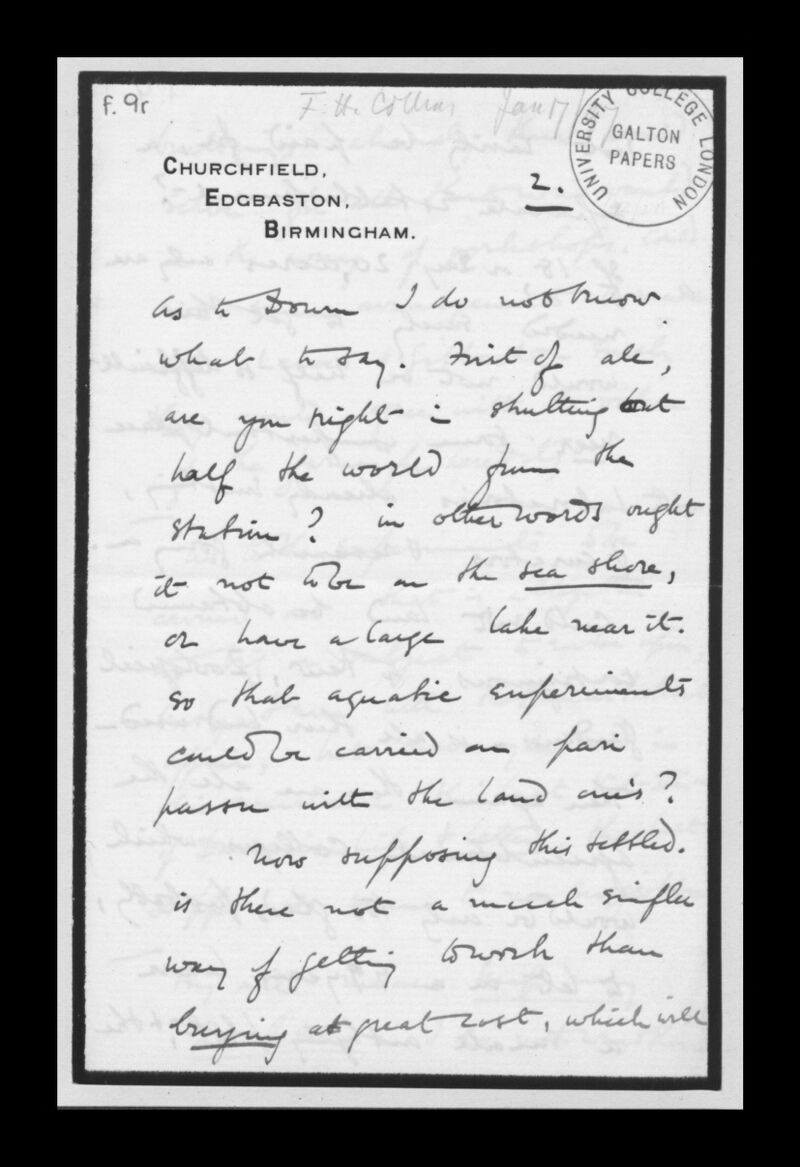 f. 9r
F. H. Collins Jan 17/97
UNIVERSITY COLLEGE LONDON
GALTON
PAPERS
CHURCHFIELD,
EDGBASTON,
BIRMINGHAM.
2.
as to Down I do not know
what to say. First of all,
are you right in shutting out
half the world from the
station? in other words ought
it not to be on the sea shore,
or have a large lake near it.
so that aquatic experiments
could be carried on pari
passu with the land one's?
Now supposing this settled.
is there not a much simpler
way of getting to work than
buying at great cost, which will